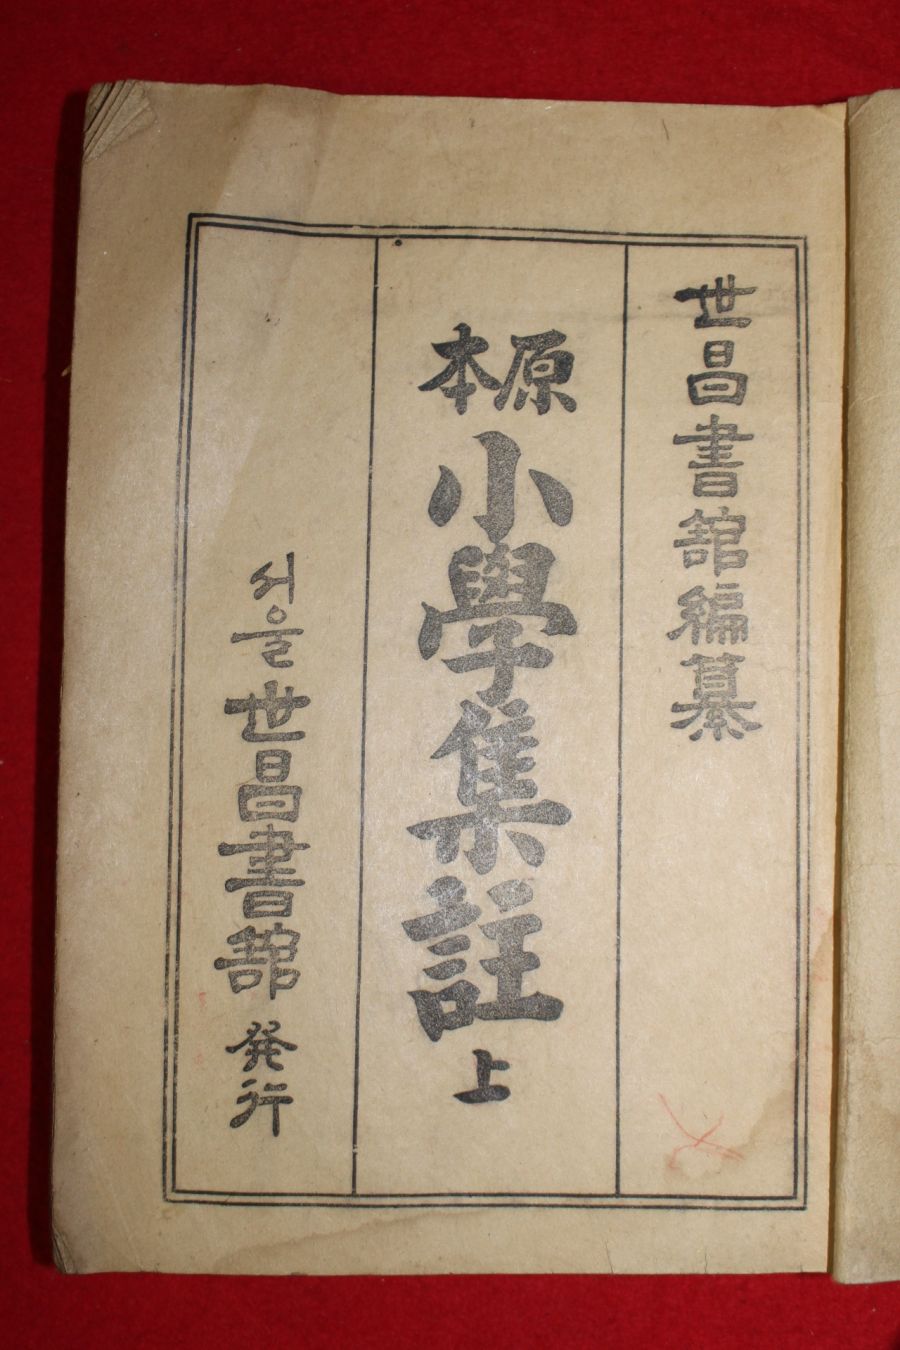 世昌書館編纂
原本
小學集註 上
서울 世昌書館 発行